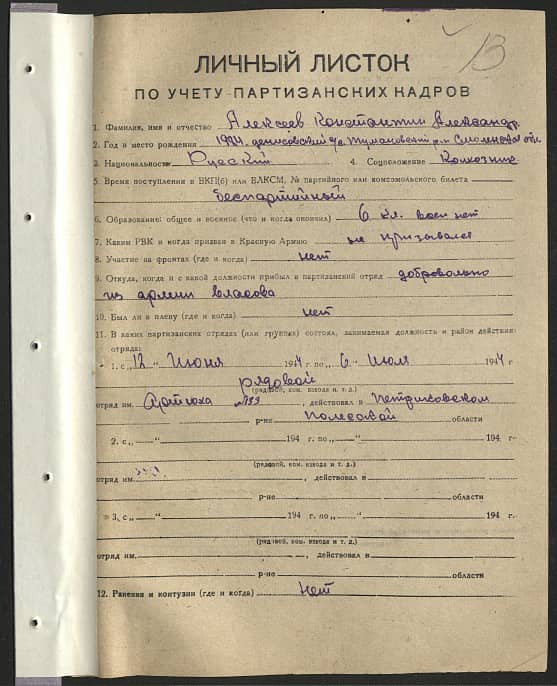 13
ЛИЧНЫЙ ЛИСТОК
ПО УЧЕТУ ПАРТИЗАНСКИХ КАДРОВ
1. Фамилия, имя и отчество Алексеев Константин Александр.
2. Год и место рождения 1924. денисовский с/с Тумановский р-н Смоленской обл.
3. Национальность Русский 4. Соцположение Колхозник
5. Время поступления в ВКП(б) или ВЛКСМ, № партийного или комсомольского билета
беспартийный
6. Образование: общее и военное (что и когда окончил) 6 кл. воен нет
7. Каким РВК и когда призван в Красную Армию не призывался
8. Участие на фронтах (где и когда) нет
9. Откуда, когда и с какой должности прибыл в партизанский отряд добровольно
из армии власова
10. Был ли в плену (где и когда) нет
11. В каких партизанских отрядах (или группах) состоял, занимаемая должность и район действия
отряда:
1. с „12 “ Июня 1944 г по „ 6 “ Июля 1944 г.
рядовой
(рядовой, ком. взвода и т. д.)
отряд им. №133, действовал в Петриковском
р-не Полесской области
2. с „ “ 194 г. по „ “ 194 г.
(рядовой, ком. взвода и т. д.)
отряд им. , действовал в
р-не области
3. с „ “ 194 г. по „ “ 194 г.
(рядовой, ком. взвода и т. д.)
отряд им. , действовал в
р-не области
12. Ранения и контузии (где и когда) нет